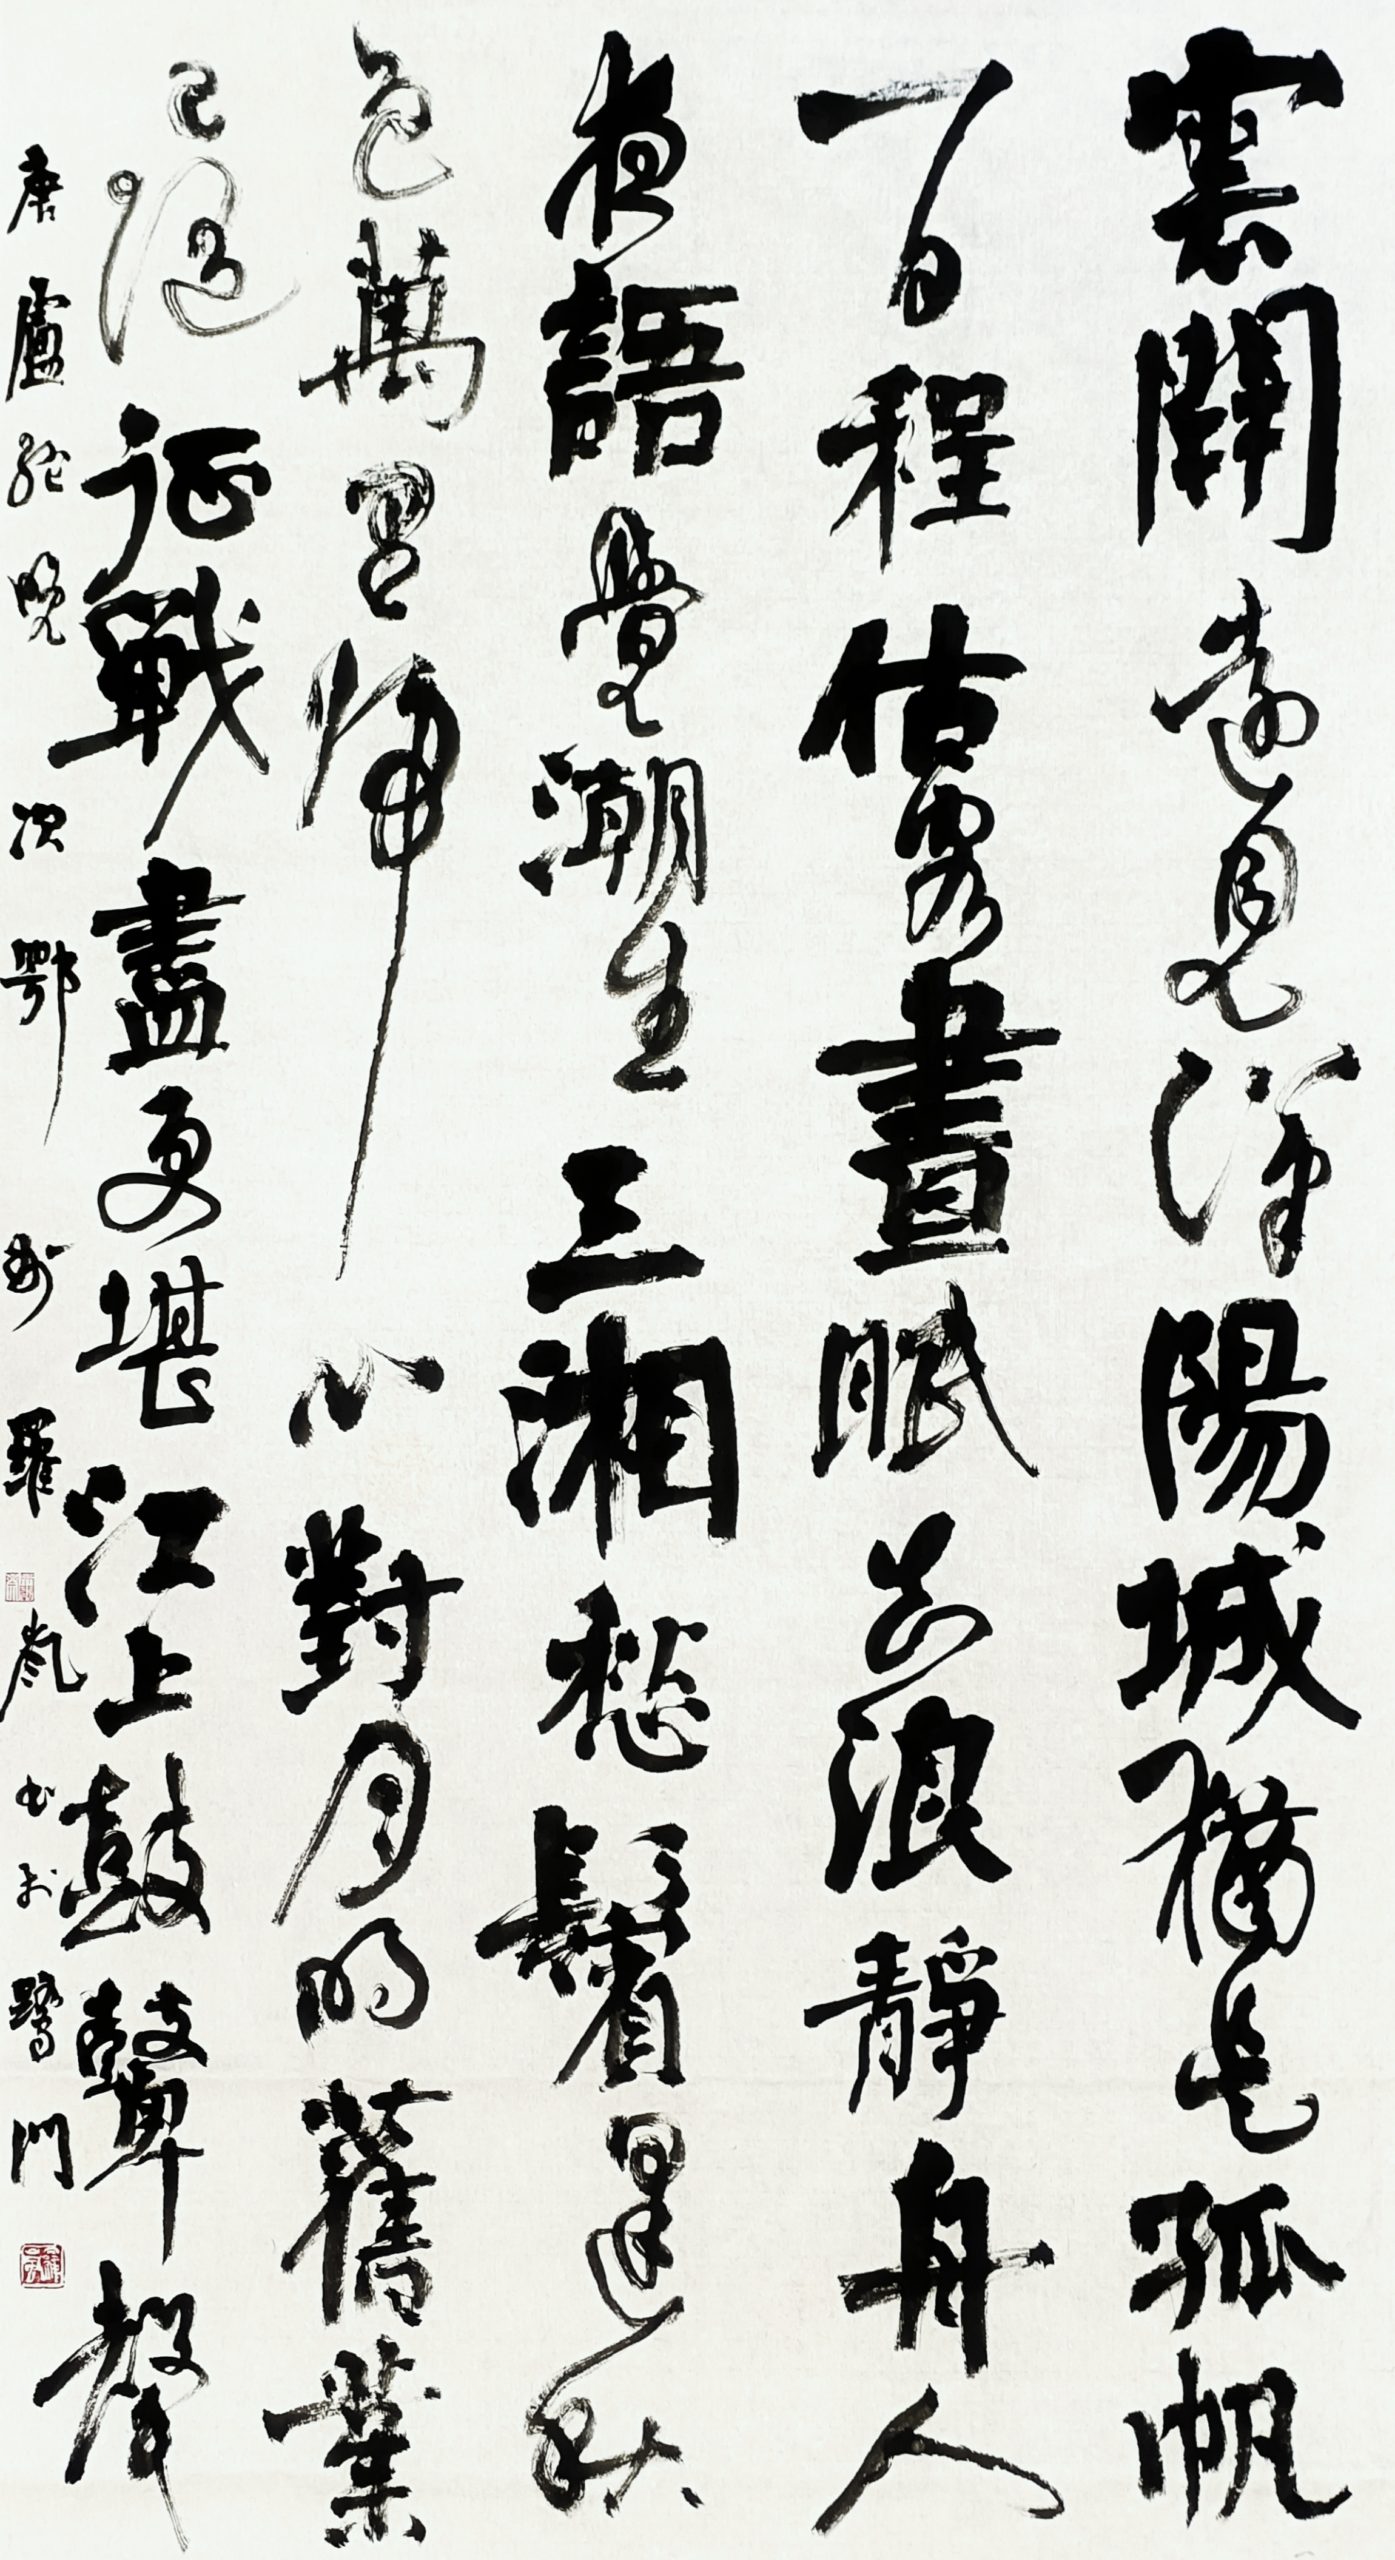 雲開遠見漢陽城猶是孤帆
一日程估客晝眠知浪靜舟人
夜語覺潮生三湘愁鬢逢秋
色萬里歸心對月明舊業
已隨征戰盡更堪江上鼓鼙聲
唐盧綸晚次鄂州羅書於鷺門